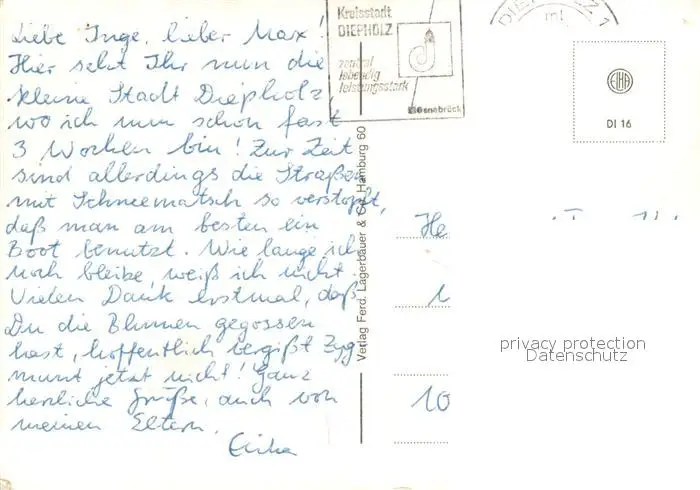 Liebe Inge, lieber Max!
Hier seht Ihr nun die
kleine Stadt Diepholz,
wo ich nun schon fast
3 Wochen bin! Zur Zeit
sind allerdings die Straßen
mit Schneematsch so verstopft,
daß man am besten ein
Boot benutzt. Wie lange ich
noch bleibe, weiß ich nicht.
Vielen Dank erstmal, daß
Du die Blumen gegossen
hast, hoffentlich vergißt Zyg-
munt jetzt nicht! Ganz
herzliche Grüße, auch von
meinen Eltern.
Erika
Kreisstadt
DIEPHOLZ
zentral
lebendig
leistungsstark
Osnabrück
DIEPHOLZ 1
ml
EIHA
DI 16
Verlag Ferd. Lagerbauer & Co. Hamburg 60
He
10
privacy protection
Datenschutz